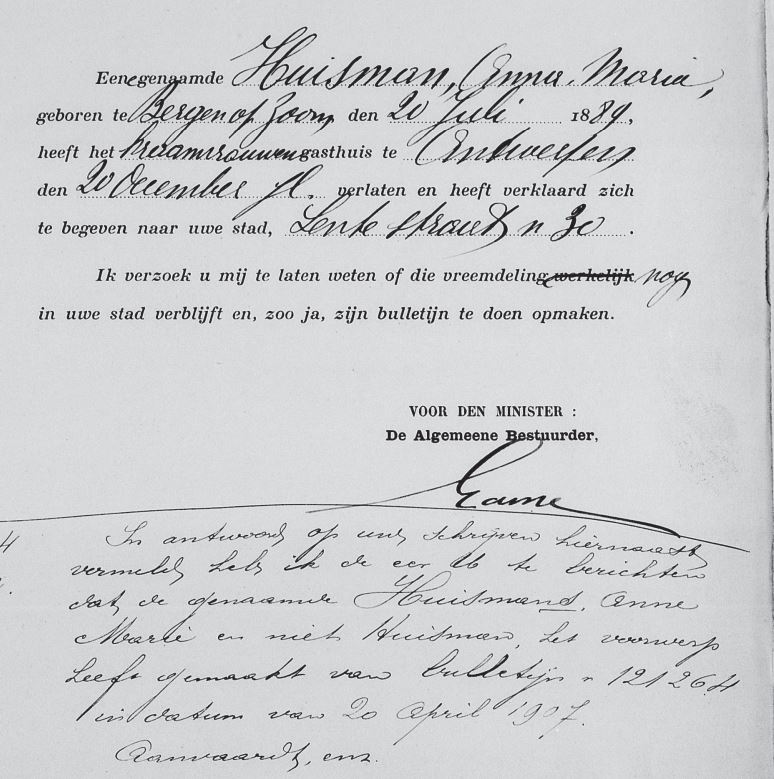 Eene genaamde Huisman, Anna Maria,
geboren te Bergen op Zoom, den 20 Juli 1889,
heeft het kraamvrouwengasthuis te Antwerpen
den 20 December jl. verlaten en heeft verklaard zich
te begeven naar uwe stad, Lente straat n 30.
Ik verzoek u mij te laten weten of die vreemdeling werkelijk nog
in uwe stad verblijft en, zoo ja, zijn bulletijn te doen opmaken.
VOOR DEN MINISTER :
De Algemeene Bestuurder,
In antwoord op uw schrijven hiernaast
vermeld, heb ik de eer U te berichten
dat de genaamde Huismans, Anne
Marie en niet Huisman, het voorwerp
heeft gemaakt van bulletijn n 121264
in datum van 20 April 1907.
Aanvaardt, enz.